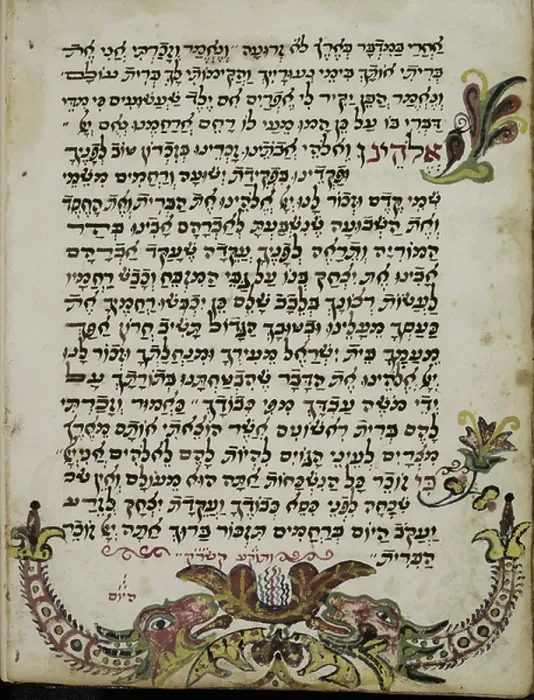 אחרי במדבר בארץ לא זרועה ״ ונאמר וזכרתי אני את
בריתי אותך בימי נעוריך והקימותי לך ברית עולם ״
ונאמר הבן יקיר לי אפרים אם ילד שעשועים כי מדי
דברי בו על כן המו מעי לו רחם ארחמנו נאם יי ״
אלהינו ואלהי אבותינו זכרינו בזכרון טוב לפניך
ופקדינו בפקודת ישועה ורחמים משמי
שמי קדם וזכור לנו יי אלהינו את הברית ואת החסד
ואת השבועה שנשבעת לאברהם אבינו בהר
המוריה ותראה לפניך עקדה שעקד אברהם
אבינו את יצחק בנו על גבי המזבח וכבש רחמיו
לעשות רצונך בלבב שלם כן יכבשו רחמיך את
כעסך מעלינו ובטובך הגדול תשיב חרון אפך
מעמך בית ישראל מעירך ומנחלתך וזכור לנו
יי אלהינו את הדבר שהבטחתנו בתורתך על
ידי משה עבדך מפי כבודך ״ כאמור וזכרתי
להם ברית ראשונים אשר הוצאתי אותם מארץ
מצרים לעיני הגוים להיות להם לאלהים אני יי ״
כי זוכר כל הנשכחות אתה הוא מעולם ואין שכ
שכחה לפני כסא כבודך ועקדת יצחק לזרע
יעקב היום ברחמים תזכור ברוך אתה יי זוכר
הברית ״ ותוקע קשר״ק
היום